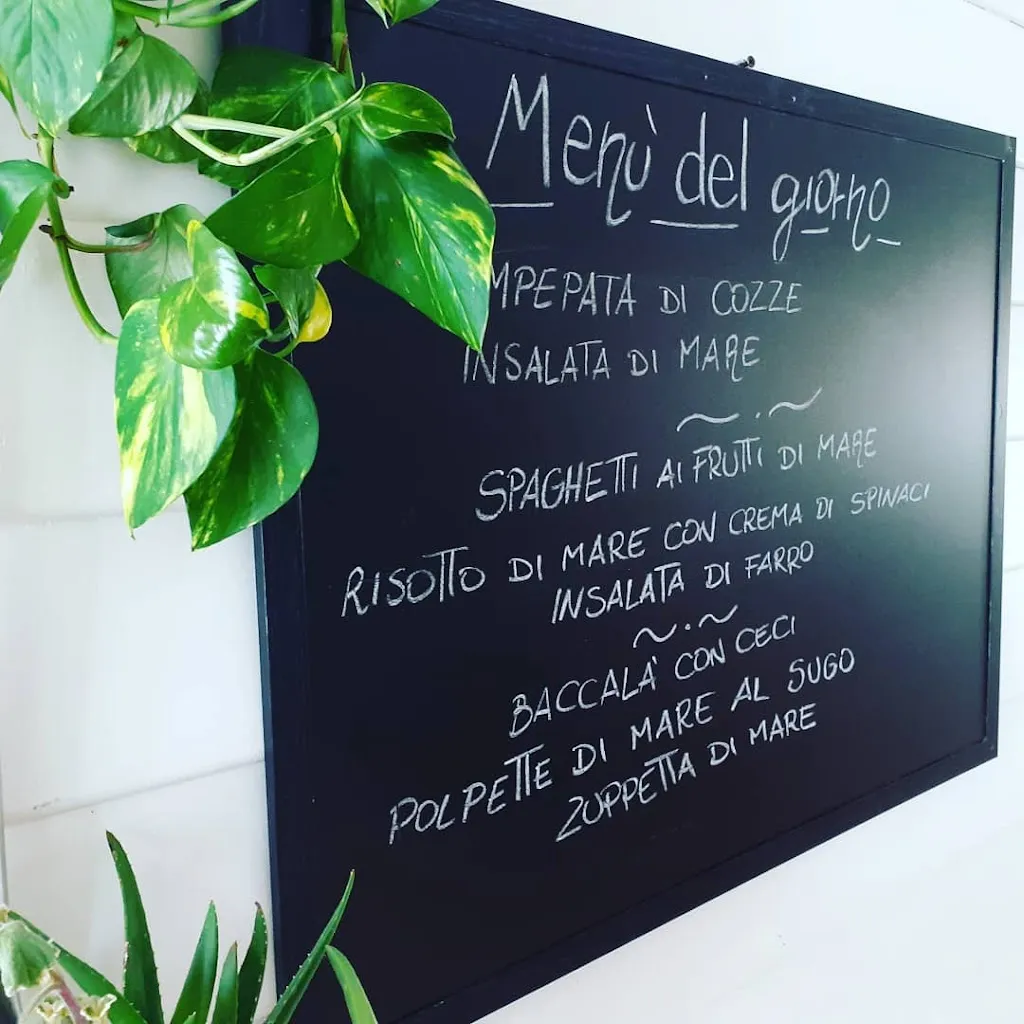 Menù del giorno
MPEPATA DI COZZE
INSALATA DI MARE
SPAGHETTI AI FRUTTI DI MARE
RISOTTO DI MARE CON CREMA DI SPINACI
INSALATA DI FARRO
BACCALÀ CON CECI
POLPETTE DI MARE AL SUGO
ZUPPETTA DI MARE